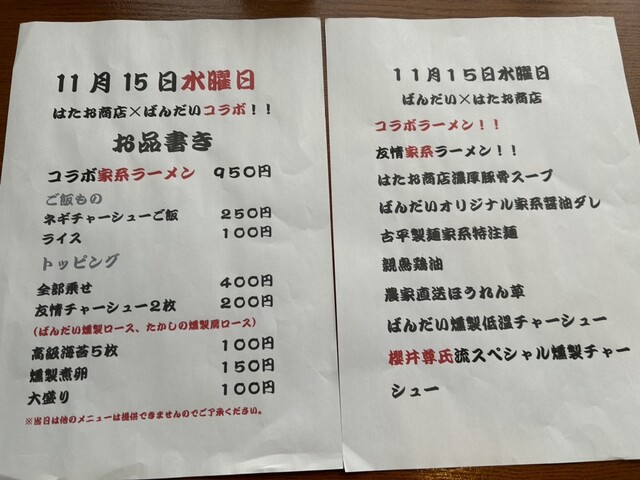 11月15日水曜日
はたお商店×ばんだいコラボ！！
お品書き
コラボ家系ラーメン 950円
ご飯もの
ネギチャーシューご飯 250円
ライス 100円
トッピング
全部乗せ 400円
友情チャーシュー2枚 200円
（ばんだい燻製ロース、たかしの燻製肩ロース）
高級海苔5枚 100円
燻製煮卵 150円
大盛り 100円
※当日は他のメニューは提供できませんのでご了承ください。
11月15日水曜日
ばんだい×はたお商店
コラボラーメン！！
友情家系ラーメン！！
はたお商店濃厚豚骨スープ
ばんだいオリジナル家系醤油ダレ
古平製麺家系特注麺
親鳥鶏油
農家直送ほうれん草
ばんだい燻製低温チャーシュー
櫻井尊氏流スペシャル燻製チャー
シュー